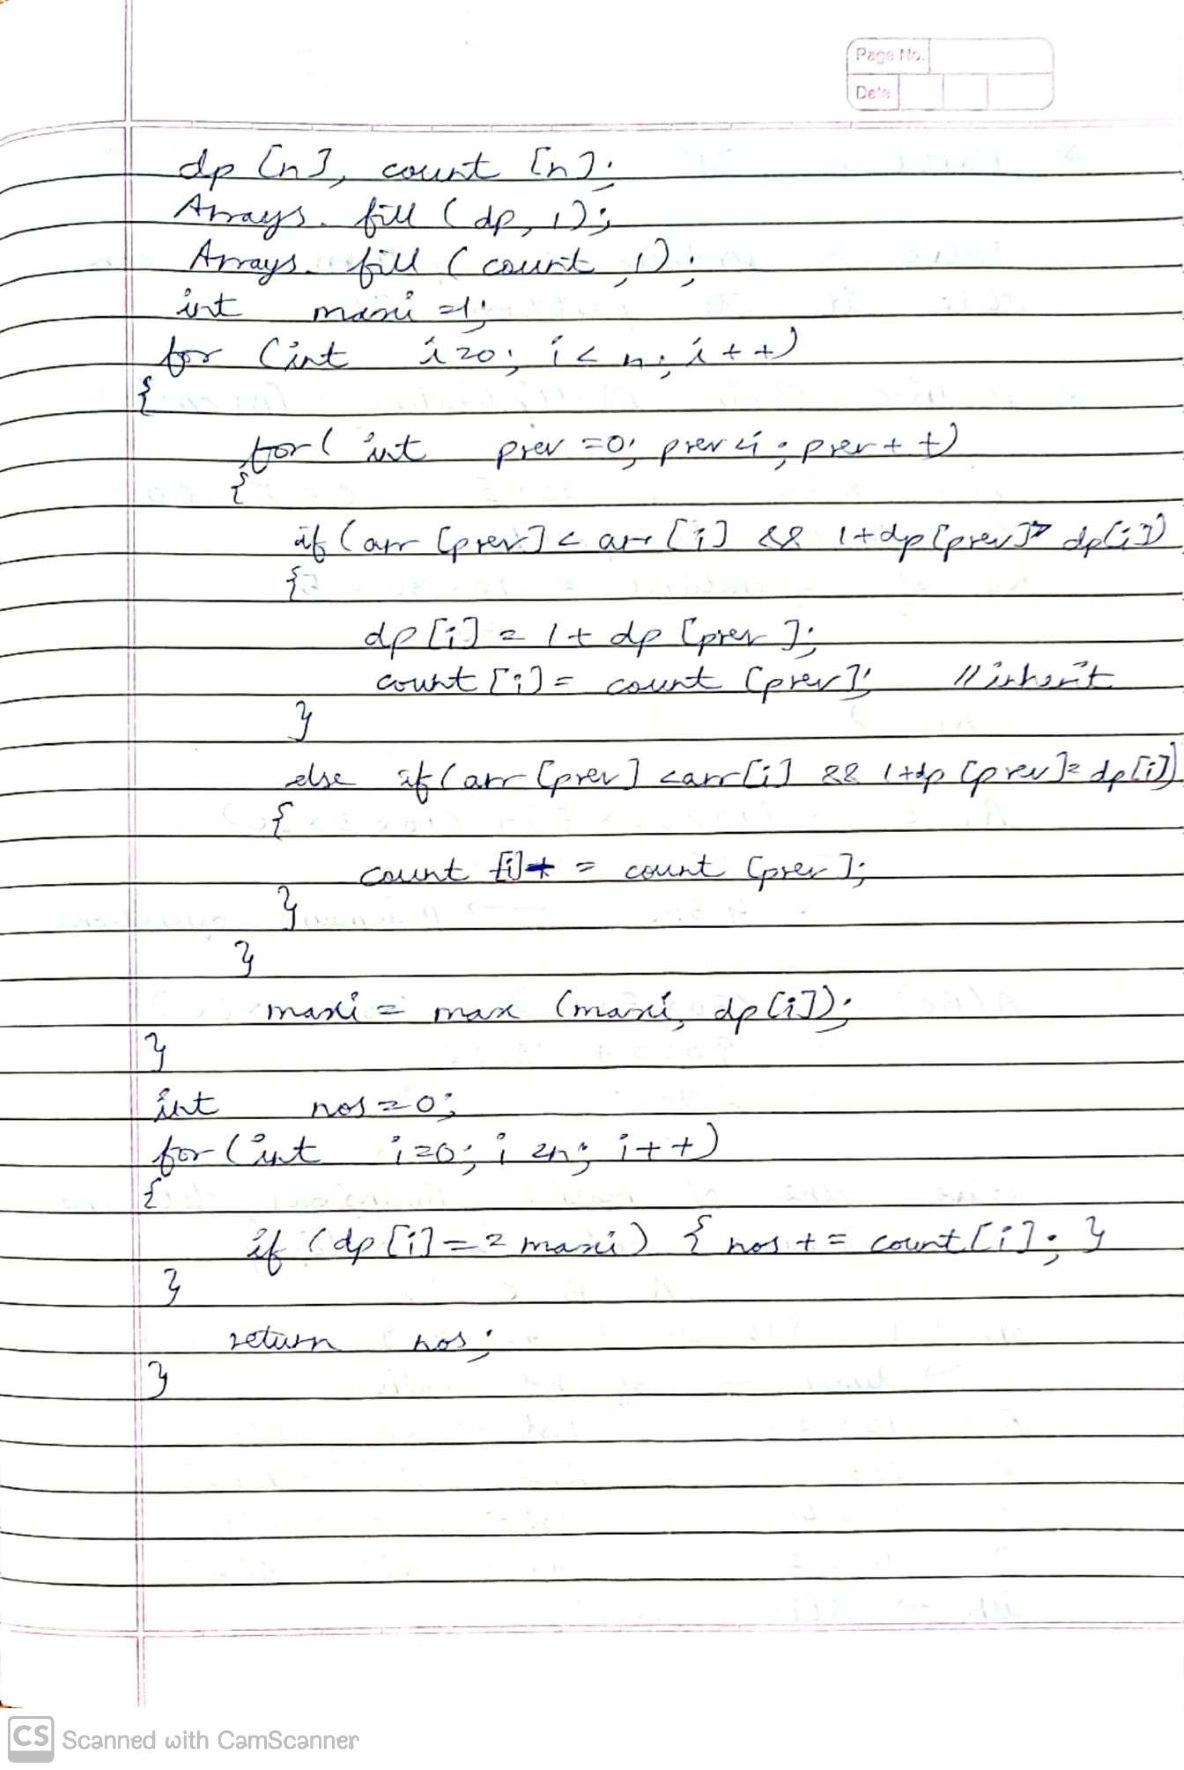 Page No.
Date
dp [n], count [n];
Arrays. fill (dp, 1);
Arrays. fill (count, 1);
int maxi =1;
for (int i=0; i< n; i++)
{
for( int prev =0; prev<i; prev++)
{
if (arr [prev] < arr [i] && 1+dp[prev]> dp[i])
{
dp [i] = 1+ dp [prev];
count [i] = count [prev]; //inherit
}
else if (arr [prev] <arr[i] && 1+dp [prev]= dp[i])
{
count [i]+ = count [prev];
}
}
maxi = max (maxi, dp[i]);
}
int nos=0;
for (int i=0; i <n; i++)
{
if (dp [i]== maxi) { nos += count[i]; }
}
return nos;
}
CS Scanned with CamScanner